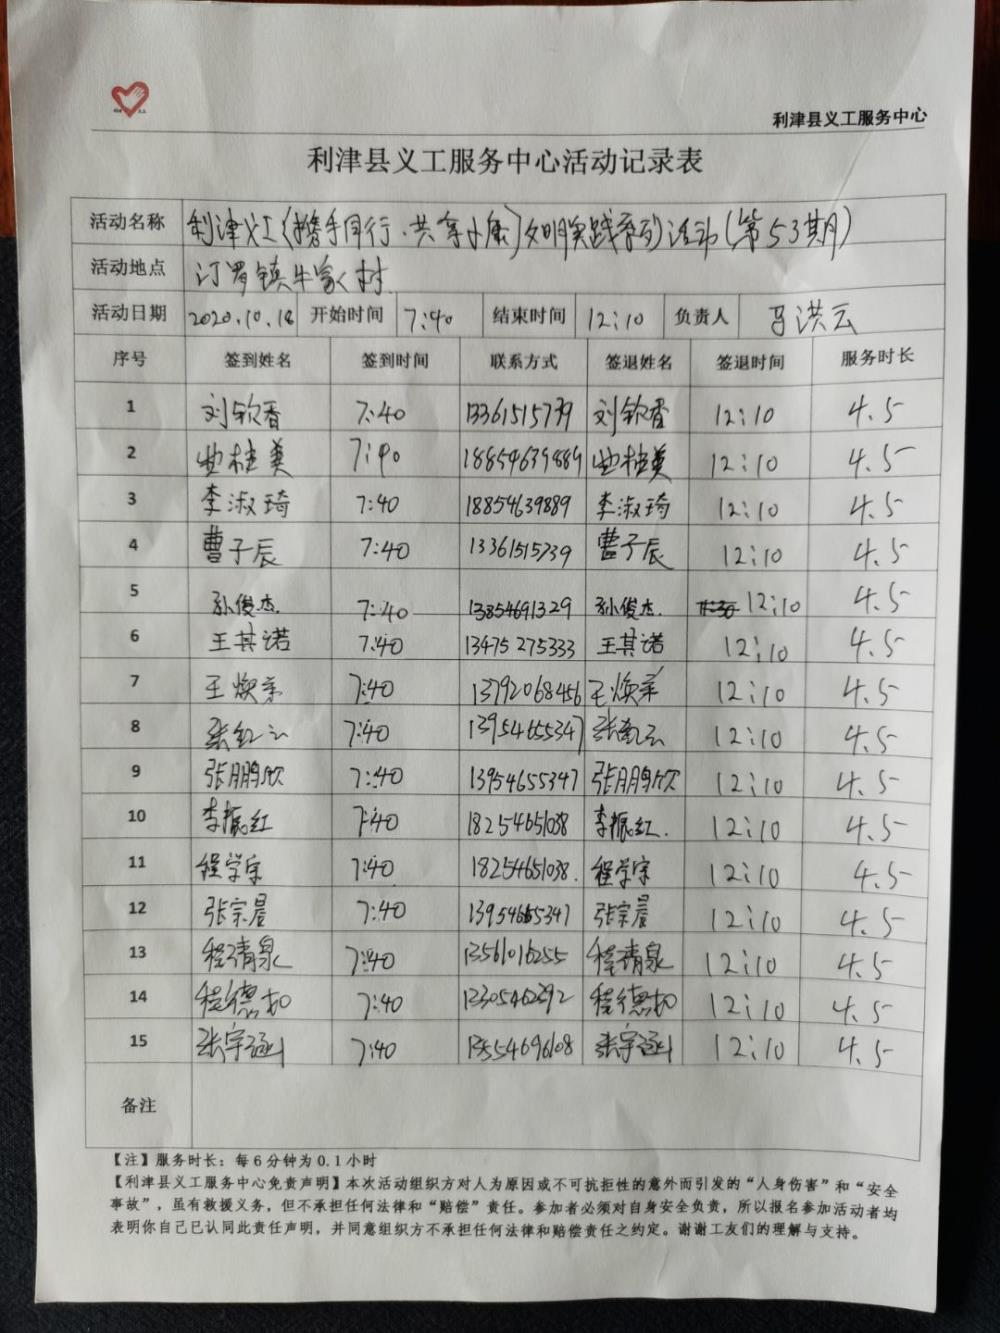 利津县义工服务中心
利津县义工服务中心活动记录表
活动名称 利津义工《携手同行·共享小康》文明实践系列活动(第53期)
活动地点 汀罗镇牛家村
活动日期 2020.10.18 开始时间 7:40 结束时间 12:10 负责人 马洪云
序号 签到姓名 签到时间 联系方式 签退姓名 签退时间 服务时长
1 刘钦香 7:40 刘钦香 12:10 4.5
2 7:40 18854639889 12:10 4.5
3 李淑琦 7:40 18854639889 李淑琦 12:10 4.5
4 曹子辰 7:40 13361515739 曹子辰 12:10 4.5
5 孙俊杰. 7:40 13854691329 孙俊杰. 12:10 4.5
6 王其诺 7:40 13475275333 王其诺 12:10 4.5
7 7:40 13792068456 12:10 4.5
8 张红云 7:40 13954655347 12:10 4.5
9 张鹏欣 7:40 13954655347 张鹏欣 12:10 4.5
10 李振红 7:40 18254651038 李振红. 12:10 4.5
11 程学宇 7:40 18254651038. 程学宇 12:10 4.5
12 张宗晨 7:40 13954655347 张宗晨 12:10 4.5
13 程清泉 7:40 程清泉 12:10 4.5
14 7:40 12:10 4.5
15 张宇涵 7:40 张宇涵 12:10 4.5
备注
【注】服务时长:每6分钟为0.1小时
【利津县义工服务中心免责声明】本次活动组织方对人为原因或不可抗拒性的意外而引发的“人身伤害”和“安全
事故”,虽有救援义务,但不承担任何法律和“赔偿”责任。参加者必须对自身安全负责,所以报名参加活动者均
表明你自己已认同此责任声明,并同意组织方不承担任何法律和赔偿责任之约定。谢谢工友们的理解与支持。